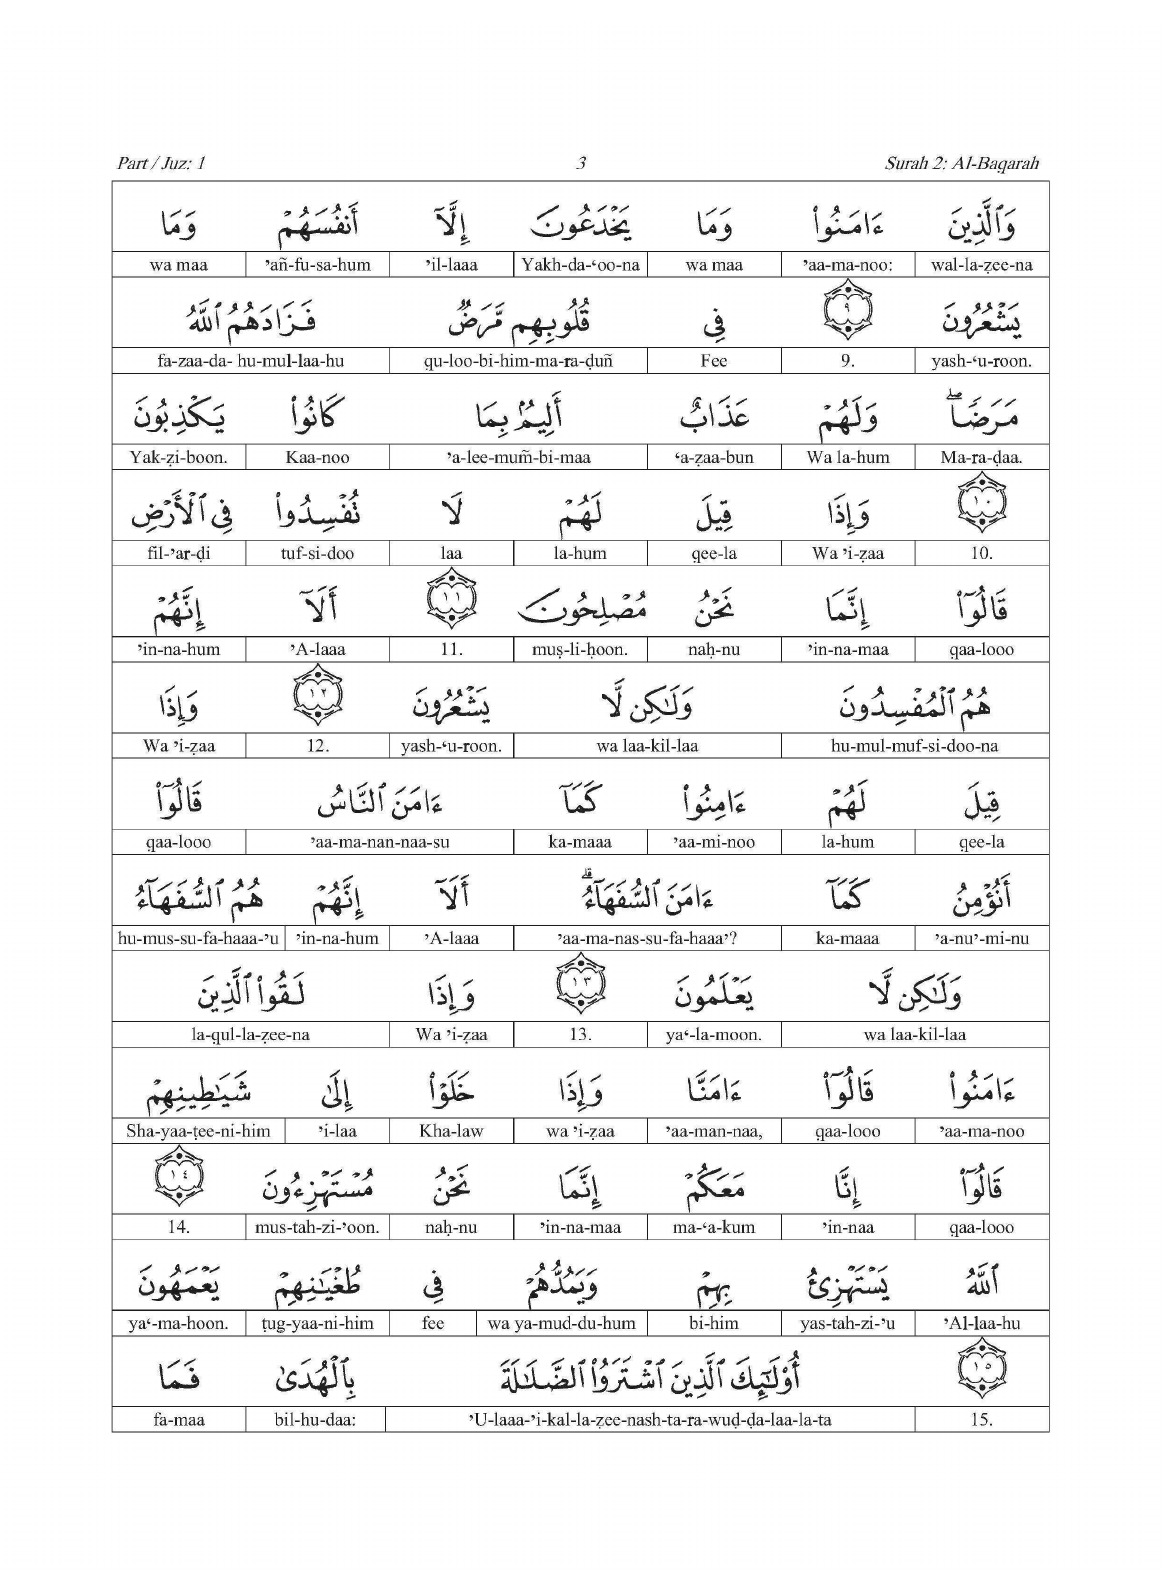 Part / Juz: 1 3 Surah 2: Al-Baqarah
وَٱلَّذِينَ ءَامَنُوا۟ وَمَا يَخْدَعُونَ إِلَّآ أَنفُسَهُمْ وَمَا
wal-la-ẓee-na ’aa-ma-noo: wa maa Yakh-da-‘oo-na ’il-laaa ’añ-fu-sa-hum wa maa
يَشْعُرُونَ ٩ فِى قُلُوبِهِم مَّرَضٌ فَزَادَهُمُ ٱللَّهُ
yash-‘u-roon. 9. Fee qu-loo-bi-him-ma-ra-ḍuñ fa-zaa-da- hu-mul-laa-hu
مَرَضًا ۖ وَلَهُمْ عَذَابٌ أَلِيمٌۢ بِمَا كَانُوا۟ يَكْذِبُونَ
Ma-ra-ḍaa. Wa la-hum ‘a-ẓaa-bun ’a-lee-mum̃-bi-maa Kaa-noo Yak-ẓi-boon.
١٠ وَإِذَا قِيلَ لَهُمْ لَا تُفْسِدُوا۟ فِى ٱلْأَرْضِ
10. Wa ’i-ẓaa qee-la la-hum laa tuf-si-doo fil-’ar-ḍi
قَالُوٓا۟ إِنَّمَا نَحْنُ مُصْلِحُونَ ١١ أَلَآ إِنَّهُمْ
qaa-looo ’in-na-maa naḥ-nu muṣ-li-ḥoon. 11. ’A-laaa ’in-na-hum
هُمُ ٱلْمُفْسِدُونَ وَلَٰكِن لَّا يَشْعُرُونَ ١٢ وَإِذَا
hu-mul-muf-si-doo-na wa laa-kil-laa yash-‘u-roon. 12. Wa ’i-ẓaa
قِيلَ لَهُمْ ءَامِنُوا۟ كَمَآ ءَامَنَ ٱلنَّاسُ قَالُوٓا۟
qee-la la-hum ’aa-mi-noo ka-maaa ’aa-ma-nan-naa-su qaa-looo
أَنُؤْمِنُ كَمَآ ءَامَنَ ٱلسُّفَهَآءُ ۗ أَلَآ إِنَّهُمْ هُمُ ٱلسُّفَهَآءُ
’a-nu’-mi-nu ka-maaa ’aa-ma-nas-su-fa-haaa’? ’A-laaa ’in-na-hum hu-mus-su-fa-haaa-’u
وَلَٰكِن لَّا يَعْلَمُونَ ١٣ وَإِذَا لَقُوا۟ ٱلَّذِينَ
wa laa-kil-laa ya‘-la-moon. 13. Wa ’i-ẓaa la-qul-la-ẓee-na
ءَامَنُوا۟ قَالُوٓا۟ ءَامَنَّا وَإِذَا خَلَوْا۟ إِلَىٰ شَيَٰطِينِهِمْ
’aa-ma-noo qaa-looo ’aa-man-naa, wa ’i-ẓaa Kha-law ’i-laa Sha-yaa-ṭee-ni-him
قَالُوٓا۟ إِنَّا مَعَكُمْ إِنَّمَا نَحْنُ مُسْتَهْزِءُونَ ١٤
qaa-looo ’in-naa ma-‘a-kum ’in-na-maa naḥ-nu mus-tah-zi-’oon. 14.
ٱللَّهُ يَسْتَهْزِئُ بِهِمْ وَيَمُدُّهُمْ فِى طُغْيَٰنِهِمْ يَعْمَهُونَ
’Al-laa-hu yas-tah-zi-’u bi-him wa ya-mud-du-hum fee ṭug-yaa-ni-him ya‘-ma-hoon.
١٥ أُو۟لَٰٓئِكَ ٱلَّذِينَ ٱشْتَرَوُا۟ ٱلضَّلَٰلَةَ بِٱلْهُدَىٰ فَمَا
15. ’U-laaa-’i-kal-la-ẓee-nash-ta-ra-wuḍ-ḍa-laa-la-ta bil-hu-daa: fa-maa